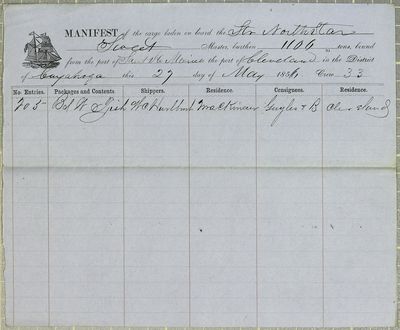 MANIFEST of the cargo laden on board the Str North Star
Sweet Master, burthen 1106 tons, bound
from the port of Marie the port of Cleveland in the District
of Cuyahoga this 27 day of May 1856 Crew 33
No. Entries. Packages and Contents Shippers. Residence. Consignees. Residence.
205 Bbl W Fish W C Hurlbut Mackinaw Gayles & B Cleveland